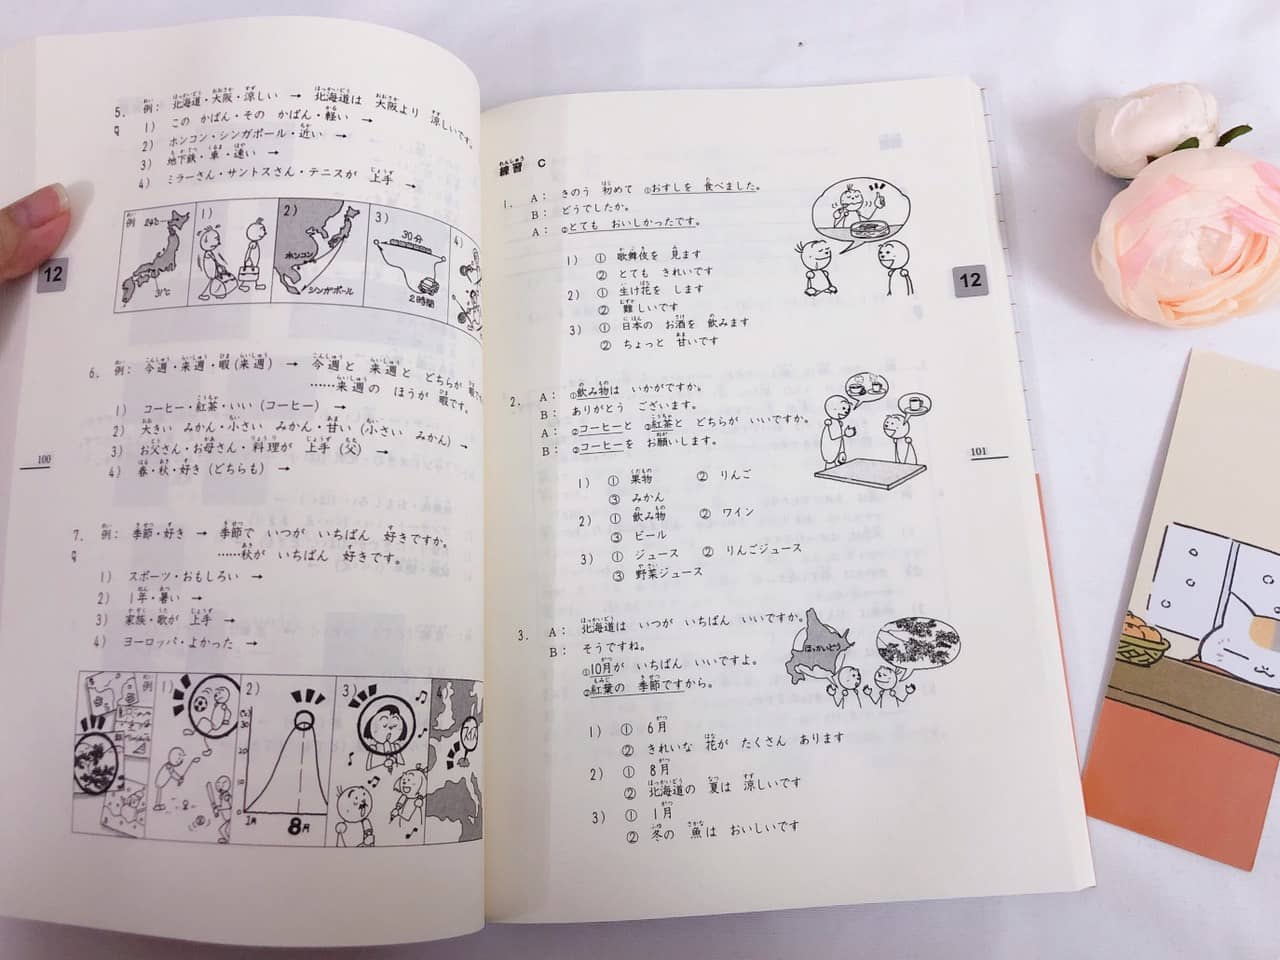 5. 例： 北海道・大阪・涼しい → 北海道は 大阪より 涼しいです。
1) この かばん・その かばん・軽い →
2) ホンコン・シンガポール・近い →
3) 地下鉄・車・速い →
4) ミラーさん・サントスさん・テニスが 上手 →
例
1)
2)
ホンコン
シンガポール
3)
30分
2時間
4)
12
6. 例： 今週・来週・暇(来週) → 今週と 来週と どちらが 暇ですか。
……来週の ほうが 暇です。
1) コーヒー・紅茶・いい (コーヒー) →
2) 大きい みかん・小さい みかん・甘い (小さい みかん) →
3) お父さん・お母さん・料理が 上手 (父) →
4) 春・秋・好き (どちらも) →
100
7. 例： 季節・好き → 季節で いつが いちばん 好きですか。
……秋が いちばん 好きです。
1) スポーツ・おもしろい →
2) 1年・暑い →
3) 家族・歌が 上手 →
4) ヨーロッパ・よかった →
例
1)
2)
1月
8月
3)
4)
スイス
練習 C
1. A： きのう 初めて ①おすしを 食べました。
B： どうでしたか。
A： ②とても おいしかったです。
1) ① 歌舞伎を 見ます
② とても きれいです
2) ① 生け花を します
② 難しいです
3) ① 日本の お酒を 飲みます
② ちょっと 甘いです
12
2. A： ①飲み物は いかがですか。
B： ありがとう ございます。
A： ②コーヒーと ③紅茶と どちらが いいですか。
B： ②コーヒーを お願いします。
1) ① 果物 ② りんご
③ みかん
2) ① 飲み物 ② ワイン
③ ビール
3) ① ジュース ② りんごジュース
③ 野菜ジュース
101
3. A： 北海道は いつが いちばん いいですか。
B： そうですね。
①10月が いちばん いいですよ。
②紅葉の 季節ですから。
ほっかいどう
1) ① 6月
② きれいな 花が たくさん あります
2) ① 8月
② 北海道の 夏は 涼しいです
3) ① 1月
② 冬の 魚は おいしいです